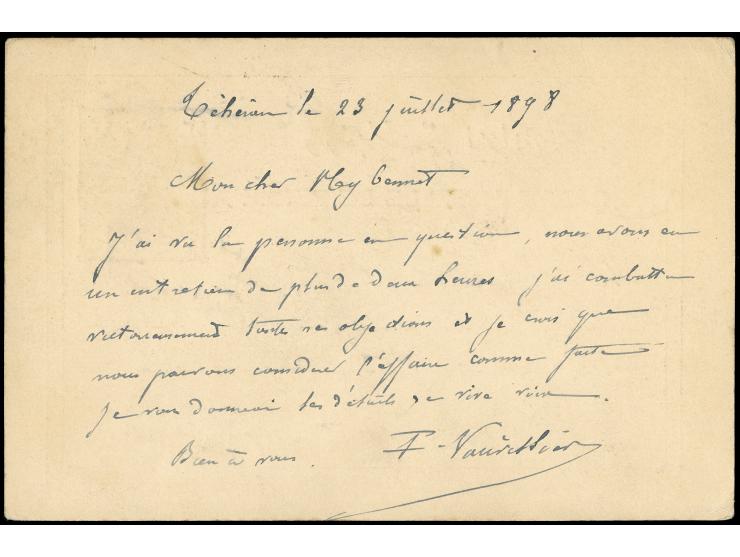 Téhéran le 23 juillet 1898
Mon cher
J'ai vu la personne en question, nous avons eu
un entretien de plus de deux heures j'ai combattu
victorieusement toutes ses objections et je crois que
nous pouvons considérer l'affaire comme faite
Je vous donnerai les détails de vive voix.
Bien à vous.